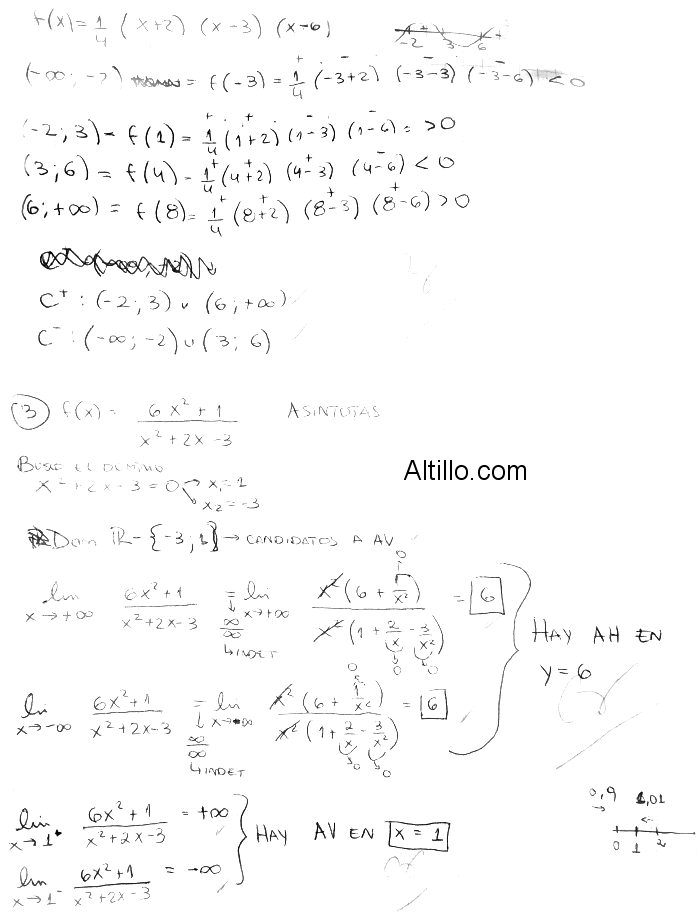 f(x) = 1/4 (x+2) (x-3) (x-6)
-2 3 6
(-∞; -2) = f(-3) = 1/4 (-3+2) (-3-3) (-3-6) < 0
(-2; 3) = f(1) = 1/4 (1+2) (1-3) (1-6) = > 0
(3; 6) = f(4) = 1/4 (4+2) (4-3) (4-6) < 0
(6; +∞) = f(8) = 1/4 (8+2) (8-3) (8-6) > 0
C⁺ : (-2; 3) ∪ (6; +∞)
C⁻ : (-∞; -2) ∪ (3; 6)
③ f(x) = (6x² + 1)/(x² + 2x - 3) ASINTOTAS
BUSCO EL DOMINIO
Altillo.com
x² + 2x - 3 = 0 → x₁ = 1
x₂ = -3
Dom ℝ - {-3; 1} → CANDIDATOS A AV
lim x→+∞ (6x² + 1)/(x² + 2x - 3) = lim x→+∞ x²(6 + 1/x²)/x²(1 + 2/x - 3/x²) = 6
∞/∞
↳ INDET
HAY AH EN
y = 6
lim x→-∞ (6x² + 1)/(x² + 2x - 3) = lim x→-∞ x²(6 + 1/x²)/x²(1 + 2/x - 3/x²) = 6
∞/∞
↳ INDET
lim x→1⁺ (6x² + 1)/(x² + 2x - 3) = +∞
HAY AV EN x = 1
lim x→1⁻ (6x² + 1)/(x² + 2x - 3) = -∞
0,9 1,01
0 1 2